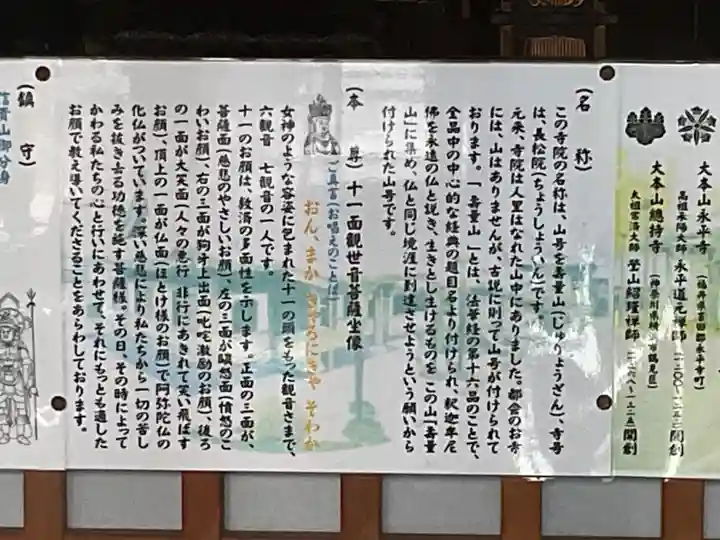 大本山永平寺（福井県吉田郡永平寺町）
高祖承陽大師 永平道元禅師 一二〇〇〜一二五三 開創
大本山總持寺（神奈川県横浜市鶴見区）
太祖常済大師 瑩山紹瑾禅師 一二六八〜一三二五 開創
（名 称）
この寺院の名称は、山号を壽量山（じゅりょうざん）、寺号
は、長松院（ちょうしょういん）です。
元来、寺院は人里はなれた山中にありました。都会のお寺
には、山はありませんが、古説に則って山号が付けられて
おります。「壽量山」とは、法華経の第十六品のことで、
全品中の中心的な経典の題目名より付けられ、釈迦牟尼
佛を永遠の仏と説き、生きとし生けるものを この山「壽量
山」に集め、仏と同じ境涯に到達させようという願いから
付けられた山号です。
（本 尊）十一面観世音菩薩坐像
ご真言（お唱えのことば）
おん、まか きゃろにきゃ そわか
女神のような容姿に包まれた十一の顔をもった観音さまで、
六観音 七観音の一人です。
十一のお顔は、救済の多面性を示します。正面の三面が、
菩薩面（慈悲のやさしいお顔）、左の三面が瞋怒面（憤怒のこ
わいお顔）、右の三面が狗牙上出面（叱咤激励のお顔）後ろ
の一面が大笑面（人々の悪行 非行にあきれて笑い飛ばす
お顔）、頂上の一面が仏面（ほとけ様のお顔）で阿弥陀仏の
化仏がついています。深い慈悲により私たちから一切の苦し
みを抜き去る功徳を施す菩薩様。その日、その時によって
かわる私たちの心と行いにあわせて、それにもっとも適した
お顔で教え導いてくださることをあらわしております。
（鎮 守）